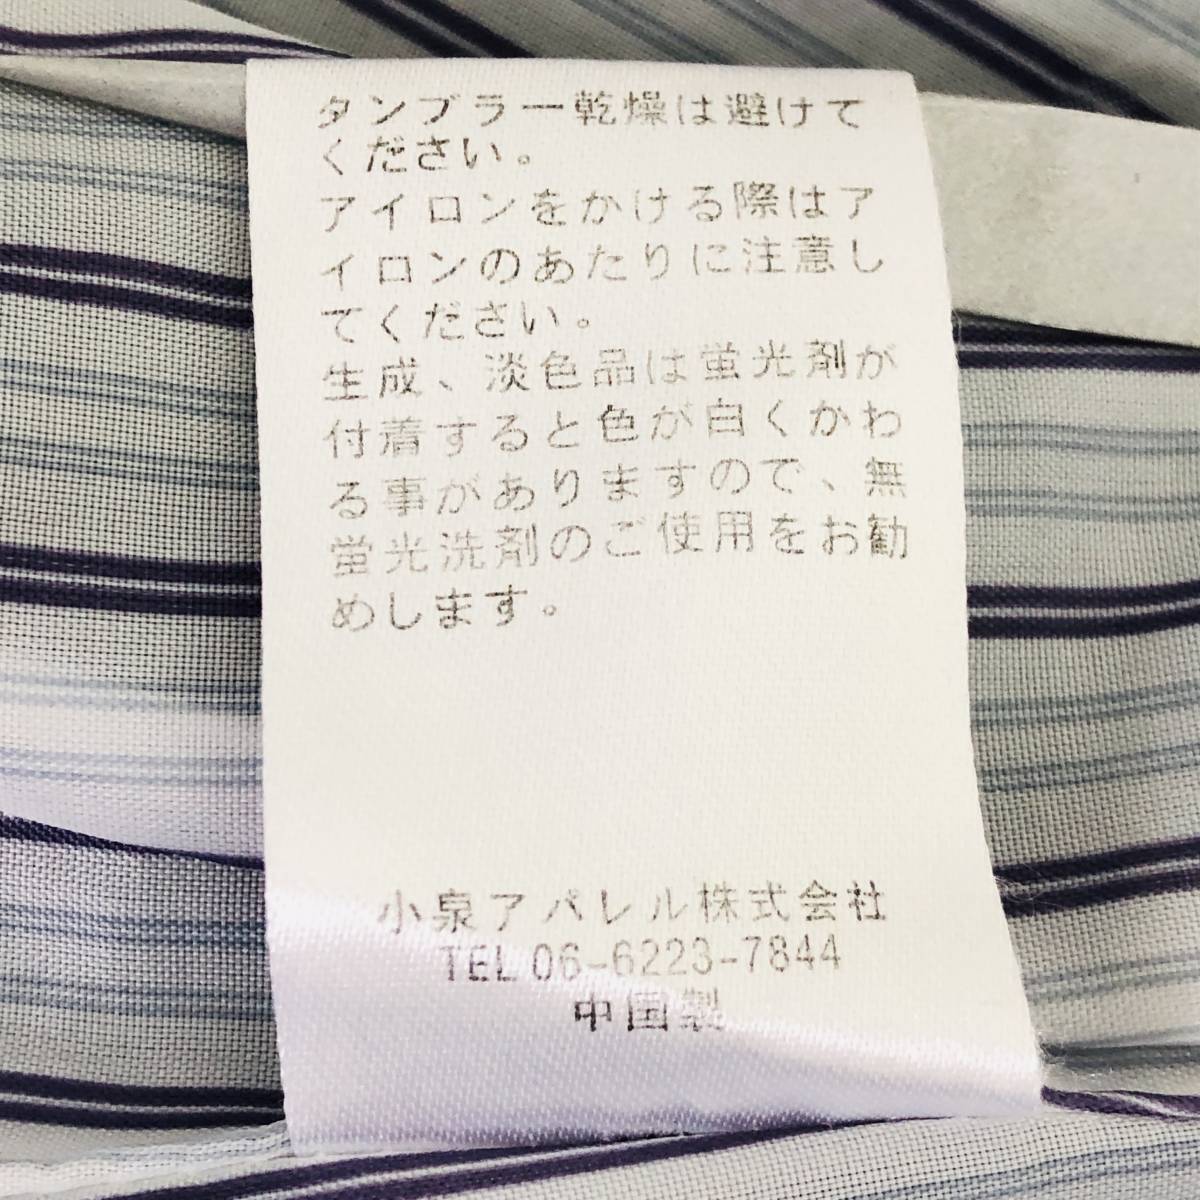 タンブラー乾燥は避けて
ください。
アイロンをかける際はア
イロンのあたりに注意し
てください。
生成、淡色品は蛍光剤が
付着すると色が白くかわ
る事がありますので、無
蛍光洗剤のご使用をお勧
めします。
小泉アパレル株式会社
TEL 06-6223-7844
中国製